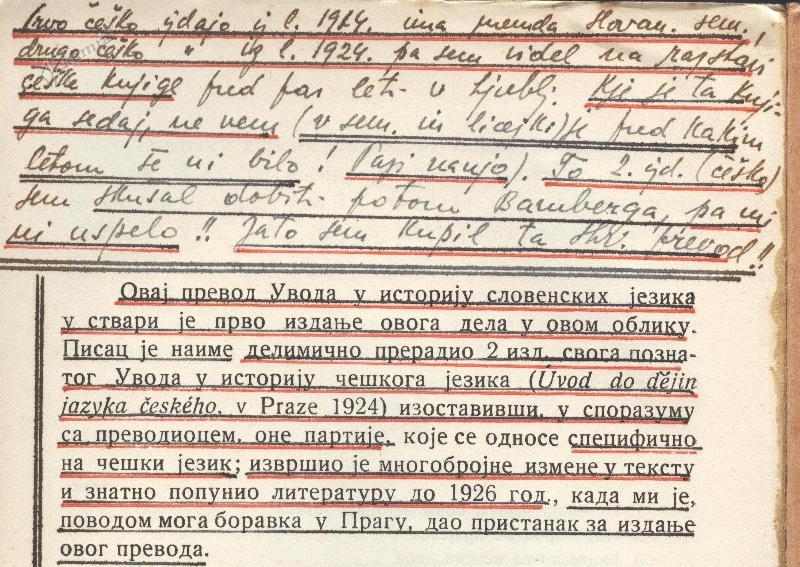 Prvo češko izdajo iz l. 1914. ima menda Slovan. sem.,
drugo češko " iz l. 1924. pa sem videl na razstavi
češke knjige pred par leti v Ljublj. Kje je ta knji-
ga sedaj, ne vem (v sem. in licejki je pred kakim
letom še ni bilo! Papi nanjo). To 2. izd. (češko)
sem skušal dobiti potom Bamberga, pa mi
ni uspelo!! Zato sem kupil ta shr. prevod!!
Овај превод Увода у историју словенских језика
у ствари је прво издање овога дела у овом облику.
Писац је наиме делимично прерадио 2 изд. свога позна-
тог Увода у историју чешкога језика (Úvod do dějin
jazyka českého, v Praze 1924) изоставивши, у споразуму
са преводиоцем, оне партије, које се односе специфично
на чешки језик; извршио је многобројне измене у тексту
и знатно попунио литературу до 1926 год., када ми је,
поводом мога боравка у Прагу, дао пристанак за издање
овог превода.